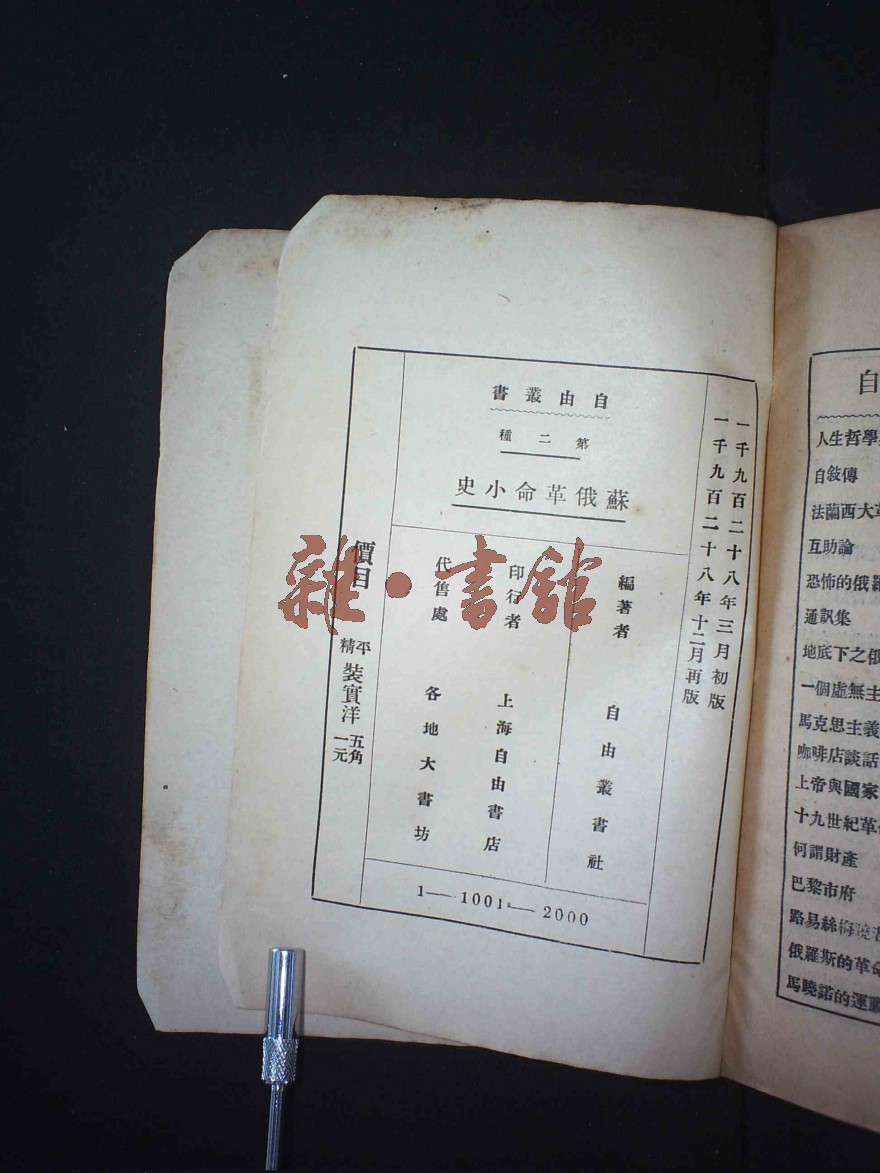 自由叢書
第二種
蘇俄革命小史
一千九百二十八年三月初版
一千九百二十八年十二月再版
編著者 自由叢書社
印行者 上海自由書店
代售處 各地大書坊
價目 平精裝實洋五角一元
1—1001—2000
雜·書館
自
人生哲學
自敍傳
法蘭西大革
互助論
恐怖的俄羅
通訊集
地底下之俄
一個虛無主
馬克思主義
咖啡店談話
上帝與國家
十九世紀革命
何謂財產
巴黎市府
路易絲梅曉若
俄羅斯的革命
馬曉諾的運動